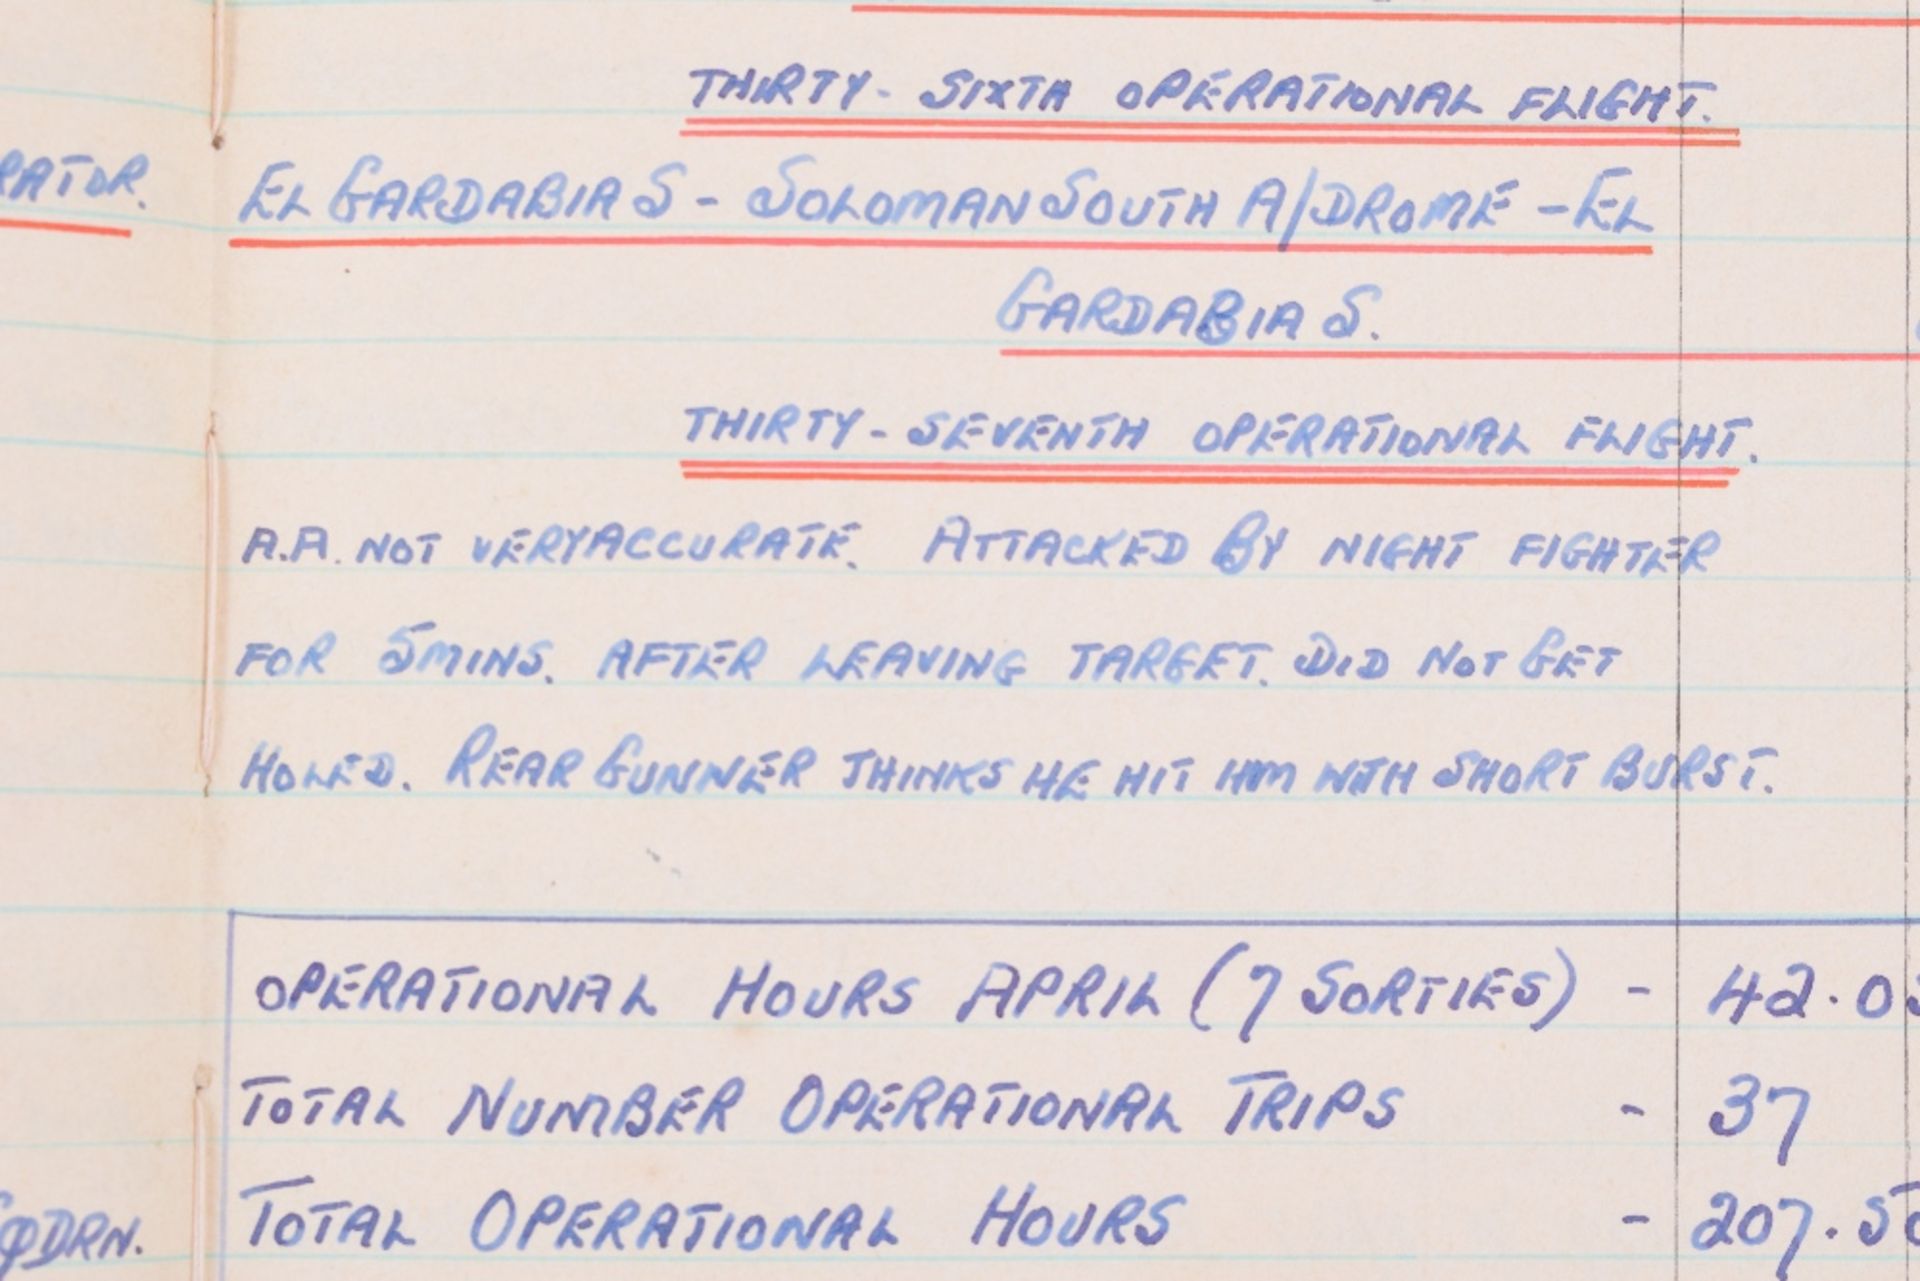 THIRTY-SIXTH OPERATIONAL FLIGHT.
RATOR. EL GARDABIA S - SOLOMAN SOUTH A/DROME - EL
GARDABIA S.
THIRTY-SEVENTH OPERATIONAL FLIGHT.
A.A. NOT VERY ACCURATE. ATTACKED BY NIGHT FIGHTER
FOR 5 MINS. AFTER LEAVING TARGET. DID NOT GET
HOLED. REAR GUNNER THINKS HE HIT HIM WITH SHORT BURST.
OPERATIONAL HOURS APRIL (7 SORTIES) - 42.0
TOTAL NUMBER OPERATIONAL TRIPS - 37
SQDRN. TOTAL OPERATIONAL HOURS - 207.5